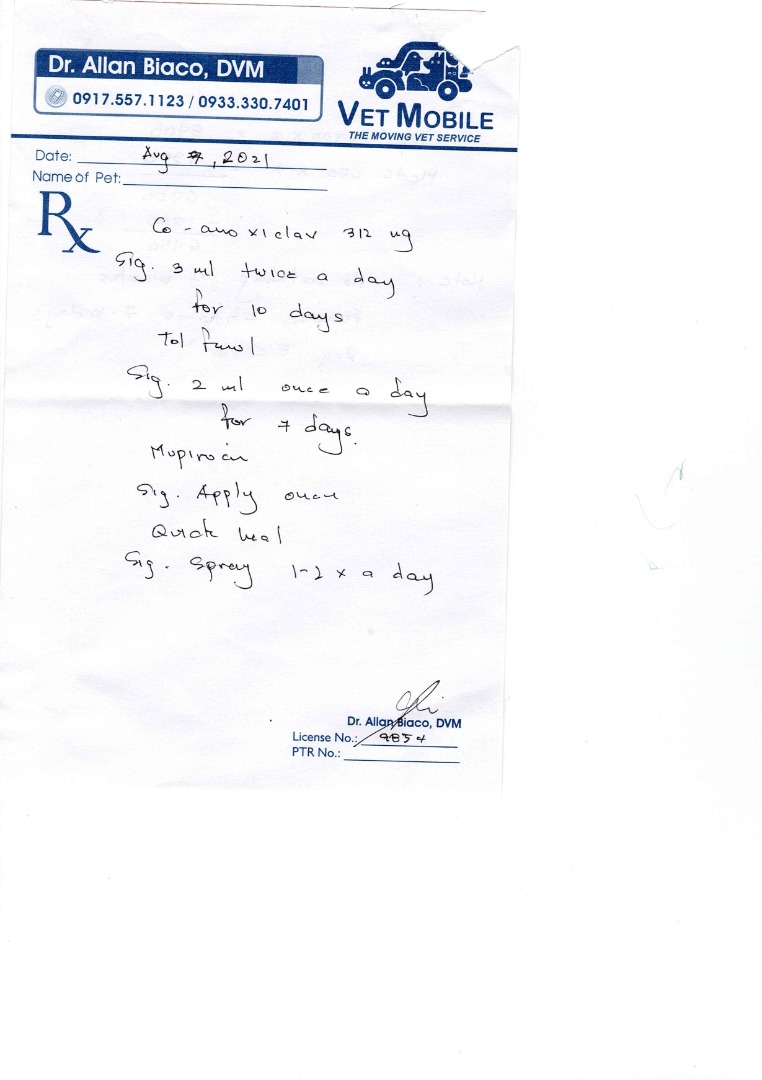 Dr. Allan Biaco, DVM
0917.557.1123 / 0933.330.7401
VET MOBILE
THE MOVING VET SERVICE
Date: Aug 7, 2021
Name of Pet:
Rx
Co-amoxiclav 312 mg
Sig. 3 ml twice a day
for 10 days
Tol
Sig. 2 ml once a day
for 7 days.
Mupirocin
Sig. Apply once
Quick heal
Sig. Spray 1-2 x a day
Dr. Allan Biaco, DVM
License No.: 9854
PTR No.: